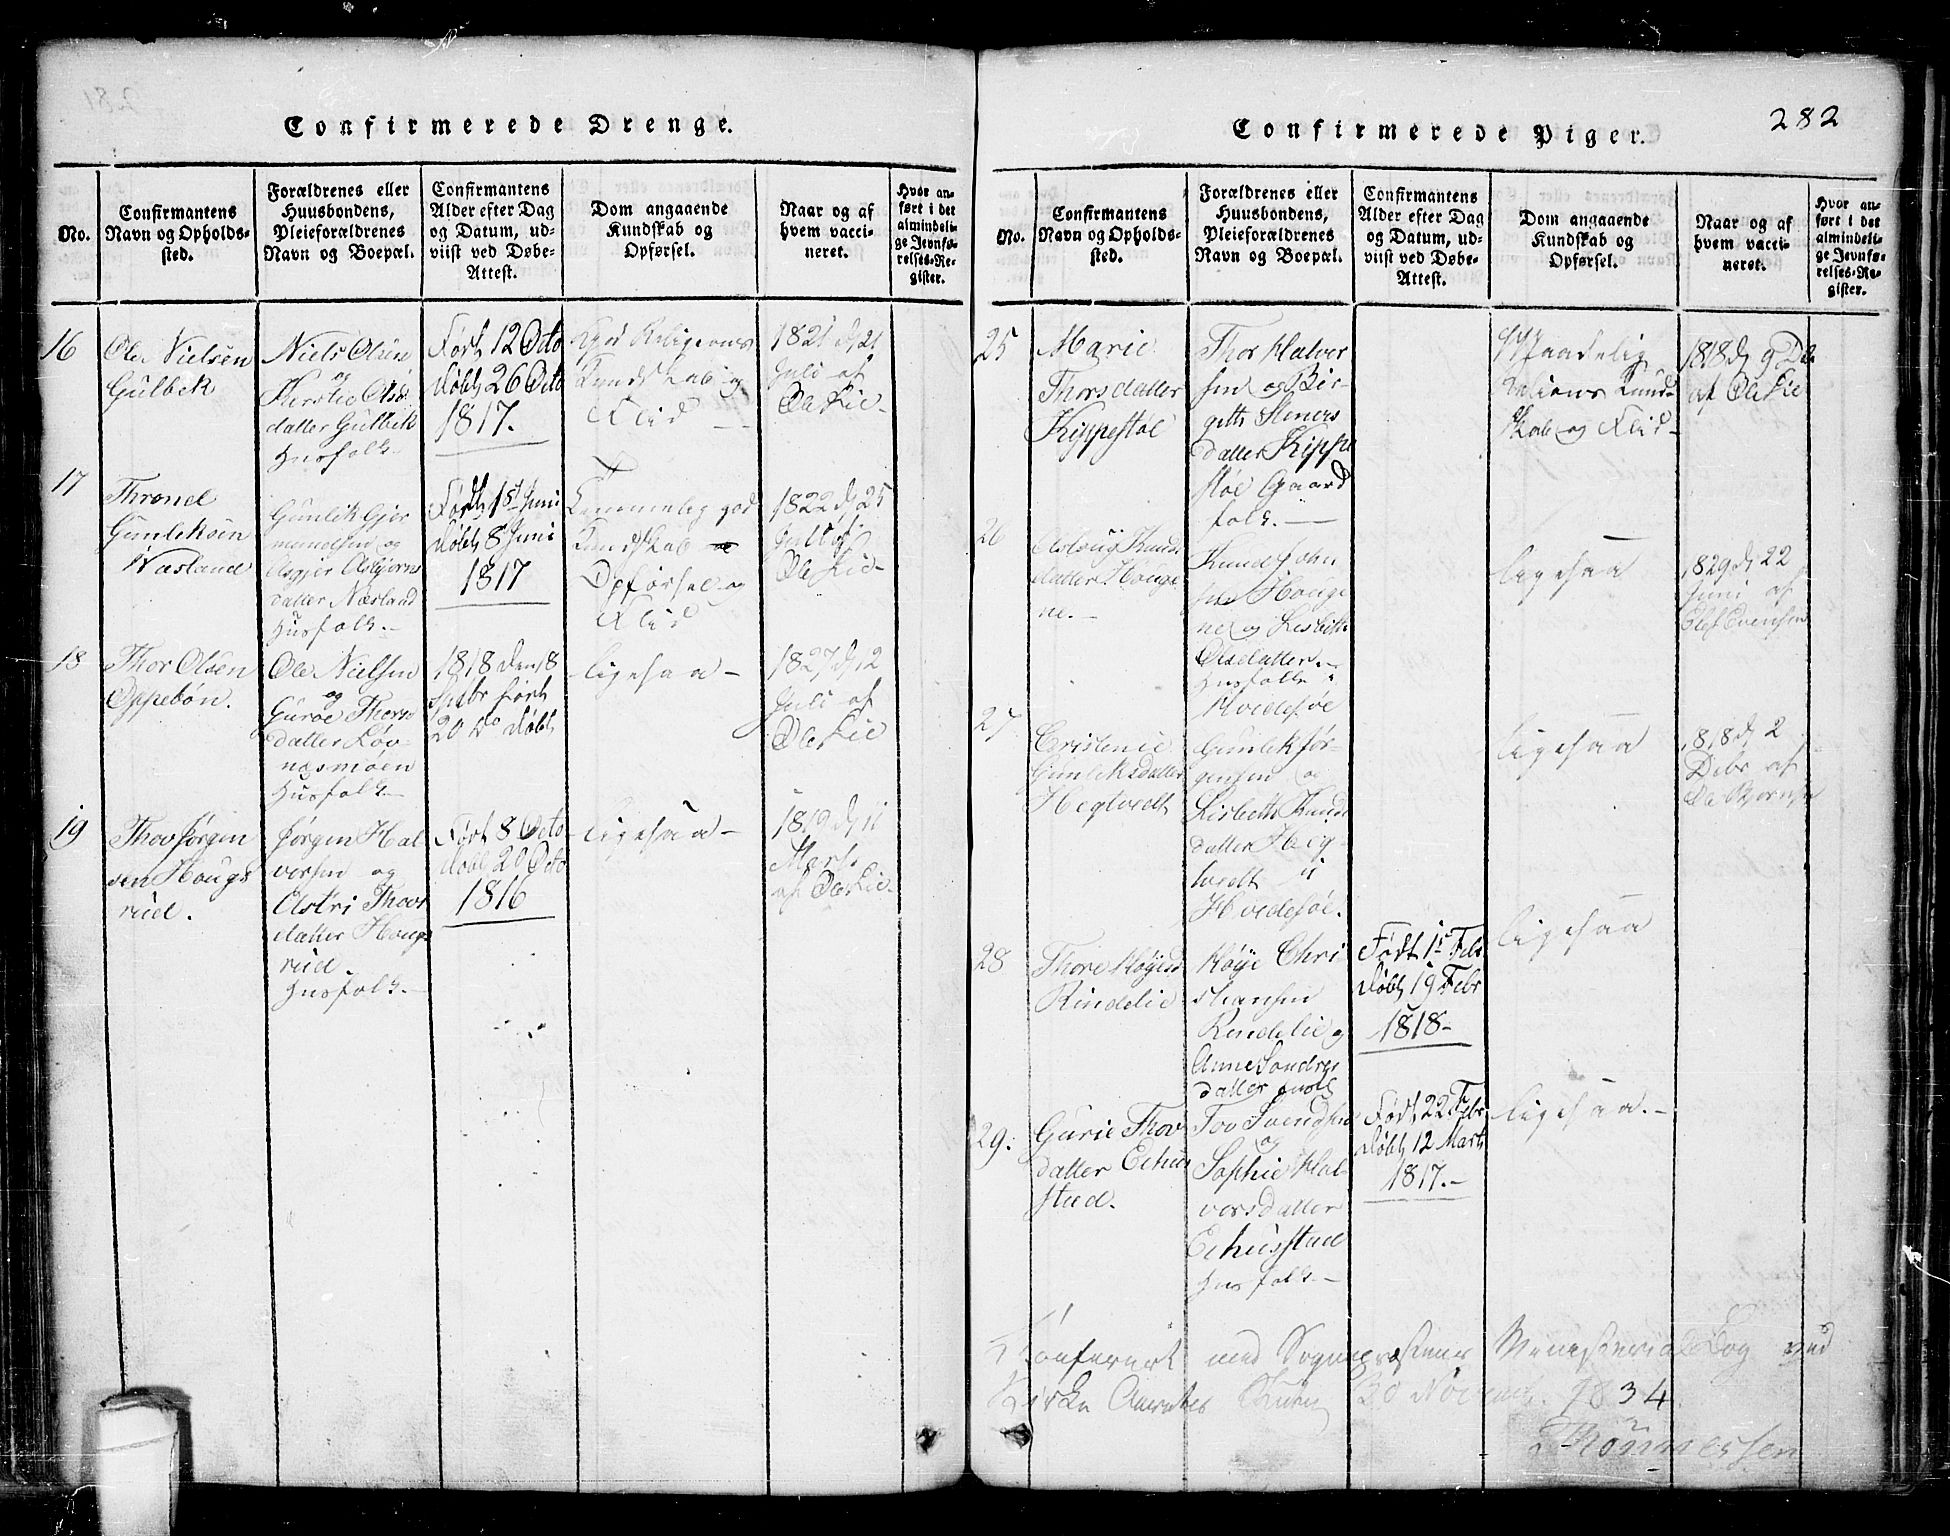 282
Confirmerede Drenge.
No.
Confirmantens
Navn og Opholds-
sted.
Forældrenes eller
Huusbondens,
Pleieforældrenes
Navn og Boepæl.
Confirmantens
Alder efter Dag
og Datum, ud-
viist ved Døbe-
Attest.
Dom angaaende
Kundskab og
Opførsel.
Naar og af
hvem vacci-
neret.
Hvor an-
ført i det
almindeli-
ge Jevnfø-
relses-Re-
gister.
16
Ole Nielsen
Gulbek
Niels Olsen
og
Kirstie Ols
datter Gulbek
Husfolk.
Født 12 Octo
døbt 26 Octo
1817.
god Religions
Kundskab og
Flid
1821 d 21
Juli af
Ole Lie
17
Thrond
Gunleksen
Næsland
Gunlik Gjer
mundsen og
Asgjer Asbjørns
datter Næsland
Husfolk.
Født 1st Juni
døbt 8 Juni
1817
Temmelig god
Kundskab
Opførsel og
Flid
1822 d 25
Juli af
Ole Lie
18
Thor Olsen
Oppebøn.
Ole Nielsen
og
Guroe Thors
datter Løv-
næsmoen
Husfolk
1818 den 18
Spbr født
20 do døbt
ligesaa
1827 d 12
Juli af
Ole Lie
19
Thov Jørgen
sen Hougs
rud.
Jørgen Hal
vorsen og
Astri Thovs
datter Hougs
rud.
Husfolk.
Født 8 Octo
døbt 20 Octo
1816
ligesaa
1819 d 11
Marts
af Ole Lie
Confirmerede Piger.
No.
Confirmantens
Navn og Opholds-
sted.
Forældrenes eller
Huusbondens,
Pleieforældrenes
Navn og Boepæl.
Confirmantens
Alder efter Dag
og Datum, ud-
viist ved Døbe-
Attest.
Dom angaaende
Kundskab og
Opførsel.
Naar og af
hvem vacci-
neret.
Hvor an-
ført i det
almindeli-
ge Jevnfø-
relses-Re-
gister.
25
Marie
Thorsdatter
Kippestøl
Thor Halvor
sen og Bir-
gitte
datter Kippe
støl Gaard
folk.
Maadelig
Religions Kund-
skab og Flid
1818 d 9 De
af Ole Lie
26
Aslaug Knuds
datter Houge
ne.
Knud Joen
sen Houge
ne og Lisbeth
Olsdatter
Husfolk i
Hvidesøe
ligesaa
1829 d 22
Juni af
Olef Evensen
27
Cristenie
Gunleksdatter
Hegtvedt
Gunlek Jør-
gensen og
Lisbeth Knuds
datter Heg-
tvedt i
Hvidesøe.
ligesaa
1818 d 2
Debr af
Ole Bjørnsen
28
Thore Høyesd
Rindelie
Høye Chri
stiansen
Rindelie og
Anne Sondres
datter
Født 1st Feb
døbt 19 Febr
1818
ligesaa
29.
Gurie Thov
datter Echus
stad.
Tov Svendsen
og
Sophie Hal-
vorsdatter
Echusstad
Husfolk.
Født 22 Febr
døbt 12 Marts
1817.
ligesaa.
Konfereret med Sognepræstens Ministerialbog ved
Kirke 30 Novemb. 1834
Thönnessen